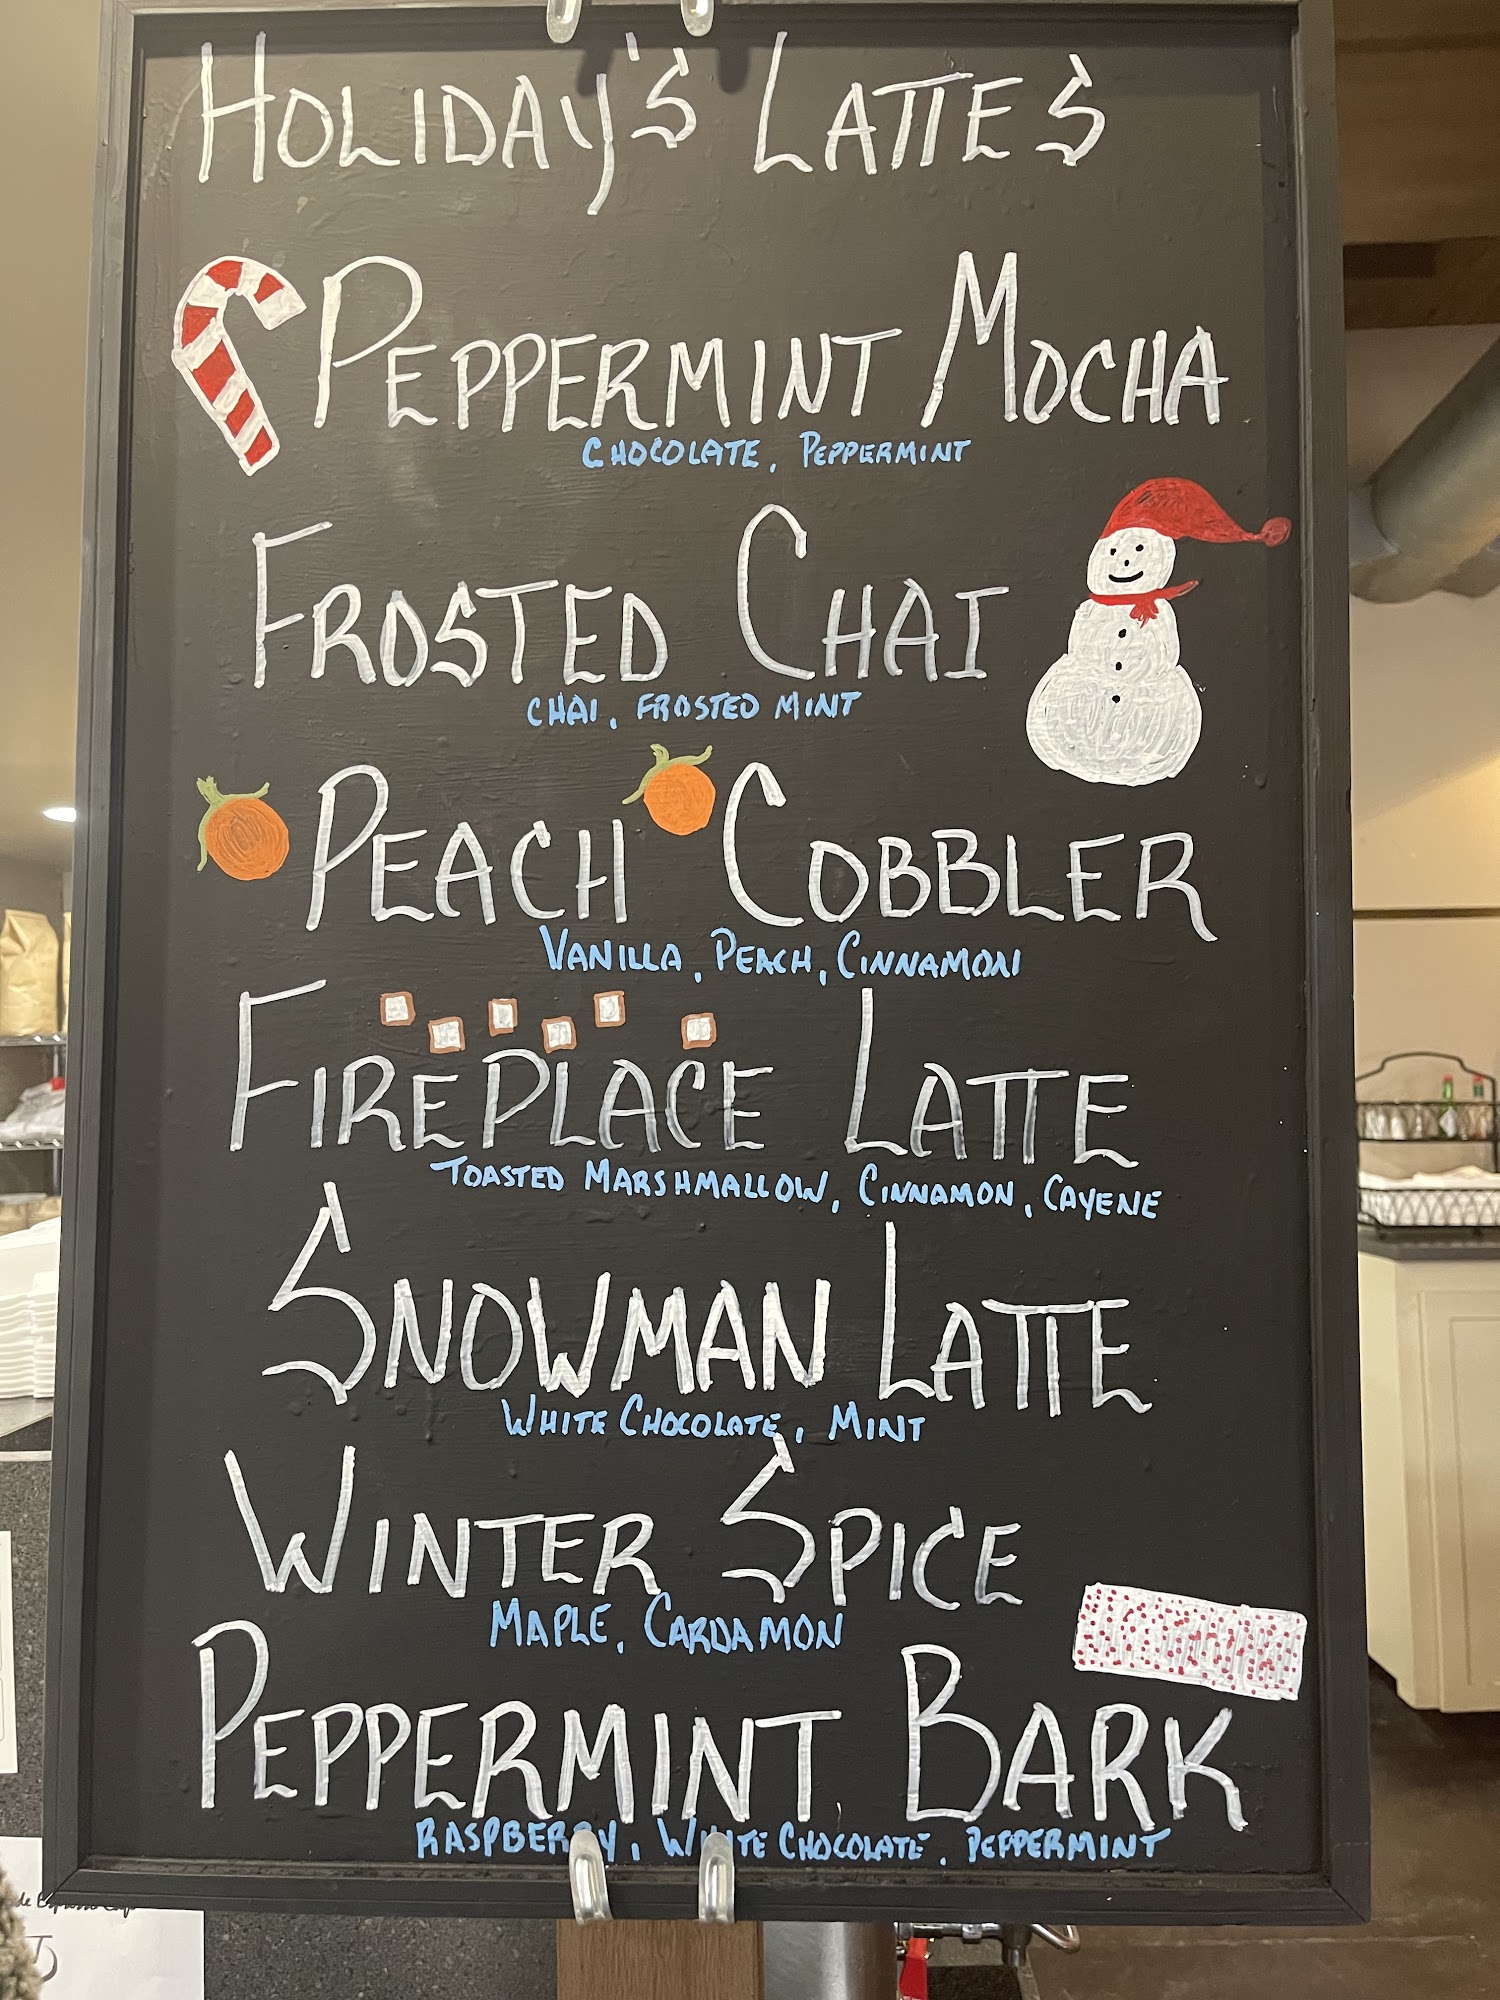 HOLIDAY'S LATTES
PEPPERMINT MOCHA
CHOCOLATE, PEPPERMINT
FROSTED CHAI
CHAI, FROSTED MINT
PEACH COBBLER
VANILLA, PEACH, CINNAMON
FIREPLACE LATTE
TOASTED MARSHMALLOW, CINNAMON, CAYENE
SNOWMAN LATTE
WHITE CHOCOLATE, MINT
WINTER SPICE
MAPLE, CARDAMON
PEPPERMINT BARK
RASPBERRY, WHITE CHOCOLATE, PEPPERMINT